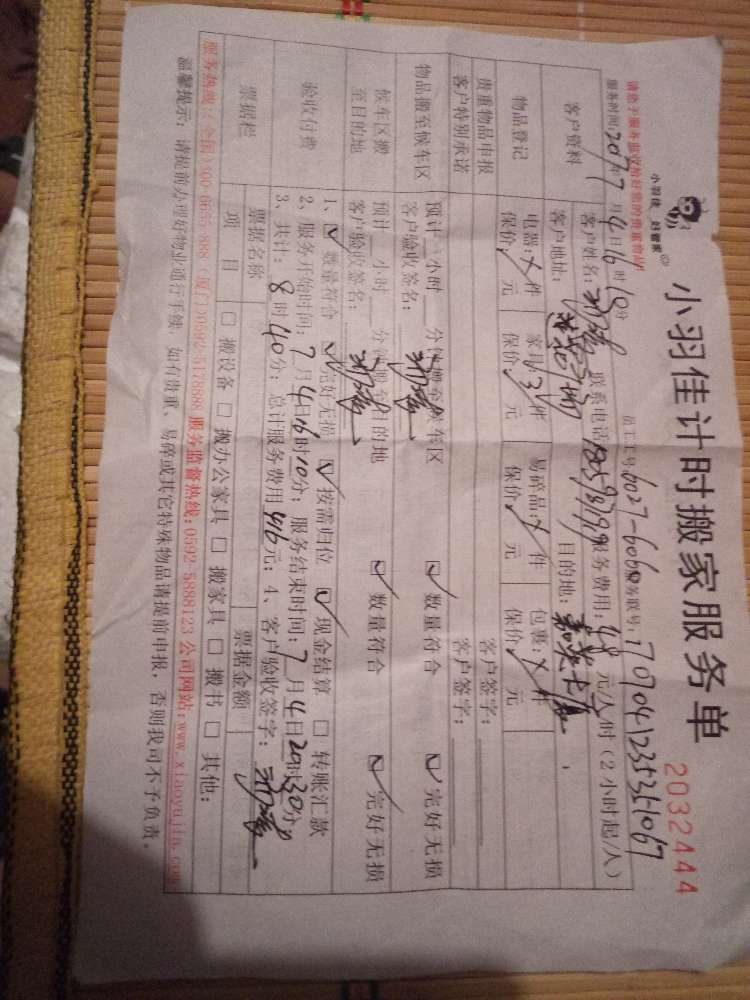 小羽佳计时搬家服务单
2032444
小羽佳 好管家
请您于服务验收后
服务时间: 2017年7月4日16时10分 员工工号: 6027-6060 服务账号: 1707041235351067
客户资料 客户姓名: 联系电话 服务费用: 元/人/时(2小时起/人)
客户地址: 目的地:
物品登记 电器: 件 家具: 件 易碎品: 件 包裹: 件
保价 元 保价 元 保价 元 保价 元
贵重物品申报 客户签字:
客户特别承诺 客户签字:
物品搬至候车区 预计 小时 分 搬至候车区 ☑ 数量符合 ☑ 完好无损
客户验收签名:
候车区搬至目的地 预计 小时 分 搬至目的地 ☑ 数量符合 ☑ 完好无损
客户验收签名:
验收付费 1、☑ 数量符合 ☑ 完好无损 ☑ 按需归位 ☑ 现金结算 □ 转账汇款
2、服务开始时间: 7月4日16时10分; 服务结束时间: 7月4日20时30分
3、共计: 8时40分; 总计服务费用 416元; 4、客户验收签字:
票据栏 票据名称 票据金额
项目 □ 搬设备 □ 搬办公家具 □ 搬家具 □ 搬书 □ 其他:
服务热线:(全国)400-6655-888 (厦门)0592-5128888 服务监督热线:0592-5888123 公司网站:www.xiaoyujia.com
温馨提示: 请提前办理好物业通行手续, 如有贵重、易碎或其它特殊物品请提前申报, 否则我司不予负责。